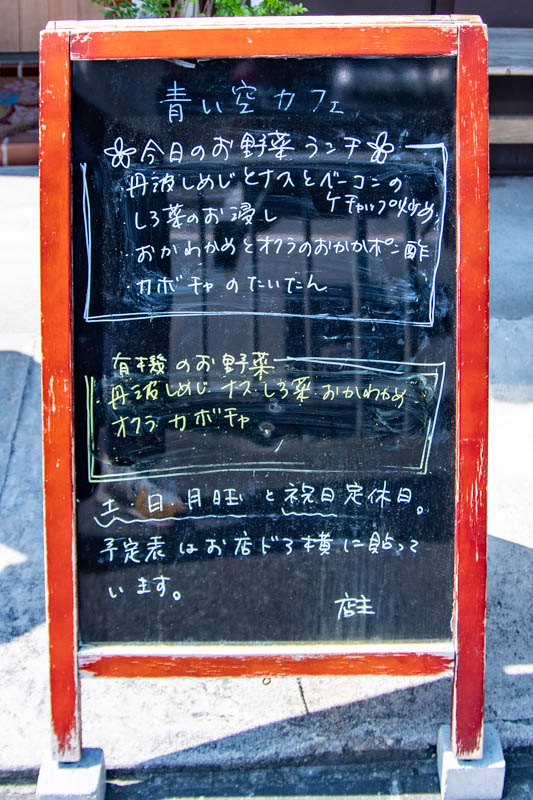 青い空カフェ
今日のお野菜ランチ
丹波しめじとナスとベーコンの
ケチャップ炒め
しろ菜のお浸し
おかわかめとオクラのおかかポン酢
カボチャのたいたん
有機のお野菜
丹波しめじ ナス しろ菜 おかわかめ
オクラ カボチャ
土日月曜と祝日定休日。
予定表はお店ドア横に貼って
います。
店主